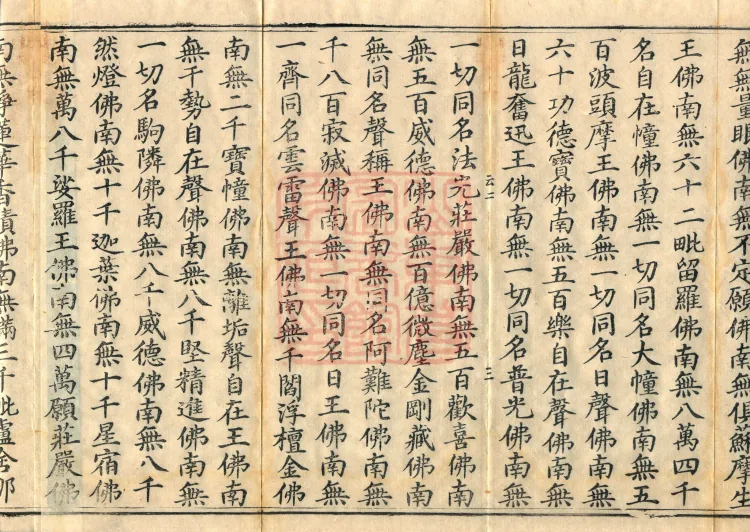 無無量眼佛南無不定願佛南無
王佛南無六十二毗留羅佛南無八萬四千
名自在幢佛南無一切同名大幢佛南無五
百波頭摩王佛南無一切同名日聲佛南無
六十功德寶佛南無五百樂自在聲佛南無
日龍奮迅王佛南無一切同名普光佛南無
云二 三
一切同名法光莊嚴佛南無五百歡喜佛南
無五百威德佛南無百億微塵金剛藏佛南
無同名聲稱王佛南無同名阿難陀佛南無
千八百寂滅佛南無一切同名日王佛南無
一齊同名雲雷聲王佛南無千閻浮檀金佛
南無二千寶幢佛南無離垢聲自在王佛南
無千勢自在聲佛南無八千堅精進佛南無
一切名駒隣佛南無八千威德佛南無八千
然燈佛南無十千迦葉佛南無十千星宿佛
南無萬八千娑羅王佛南無四萬願莊嚴佛
南無淨蓮華香積佛南無滿三千毗盧舍那